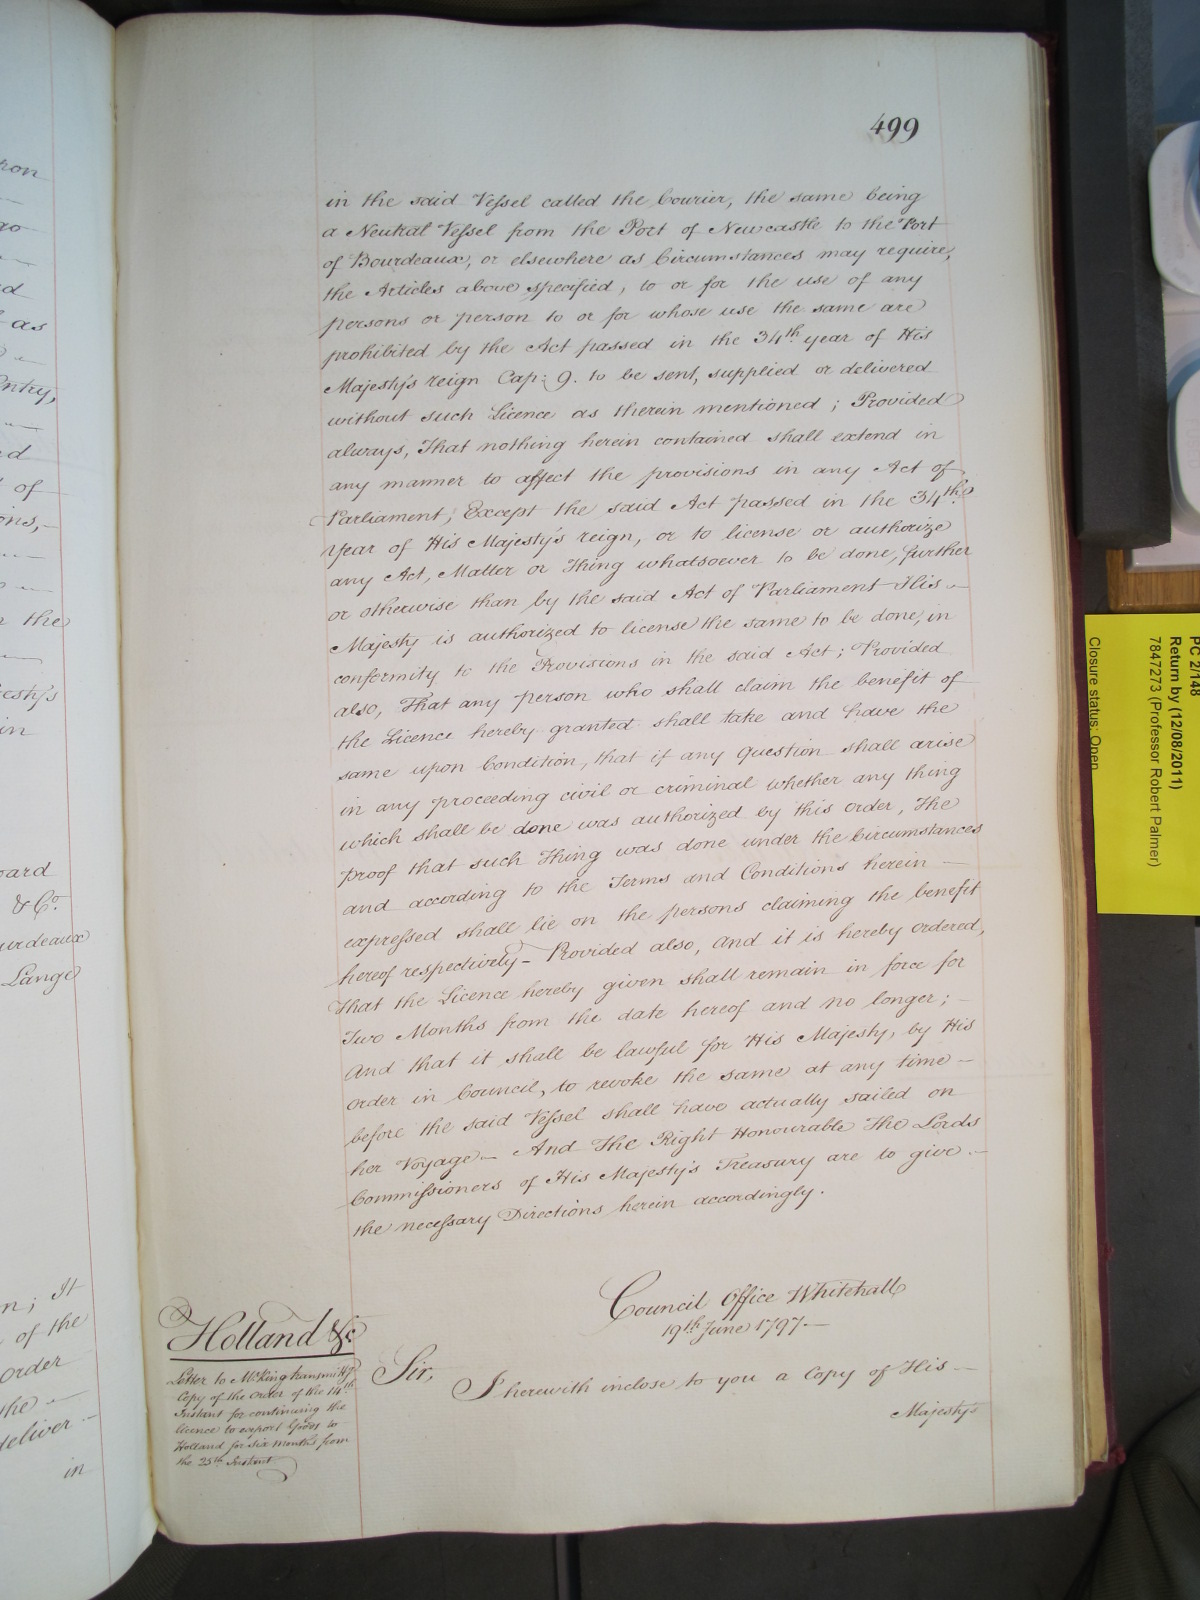 499
in the said Vessel called the Courier, the same being
a Neutral Vessel from the Port of Newcastle to the Port
of Bourdeaux, or elsewhere as Circumstances may require,
the Articles above specified, to or for the use of any
persons or person to or for whose use the same are
prohibited by the Act passed in the 34th. year of His
Majesty's reign Cap: 9. to be sent, supplied or delivered
without such Licence as therein mentioned; Provided
always, That nothing herein contained shall extend in
any manner to affect the provisions in any Act of
Parliament, Except the said Act passed in the 34th.
Year of His Majesty's reign, or to license or authorize
any Act, Matter or Thing whatsoever to be done, further
or otherwise than by the said Act of Parliament His
Majesty is authorized to license the same to be done, in
conformity to the Provisions in the said Act; Provided
also, That any person who shall claim the benefit of
the Licence hereby granted shall take and have the
same upon Condition, that if any Question shall arise
in any proceeding civil or criminal whether any thing
which shall be done was authorized by this order, The
proof that such Thing was done under the Circumstances
and according to the Terms and Conditions herein —
expressed shall lie on the persons claiming the benefit
hereof respectively — Provided also, And it is hereby ordered,
That the Licence hereby given shall remain in force for
Two Months from the date hereof and no longer; —
And that it shall be lawful for His Majesty, by His
Order in Council, to revoke the same at any time —
before the said Vessel shall have actually sailed on
her Voyage — And The Right Honourable The Lords
Commissioners of His Majesty's Treasury are to give —
the necessary Directions herein accordingly.
Council Office Whitehall
19th June 1797. —
Holland &c
Letter to Mr. King transmittg.
Copy of the Order of the 14th
Instant for continuing the
licence to export Goods to
Holland for six months from
the 25th Instant
Sir,
I herewith inclose to you a Copy of His —
Majesty's
ron
as
Entry,
of
ons,
the
esty's
in
oard
& Co.
urdeaux
Lange
n; It
of the
order
the —
deliver
in
PC 2/148
Return by (12/08/2011)
7847273 (Professor Robert Palmer)
Closure status: Open